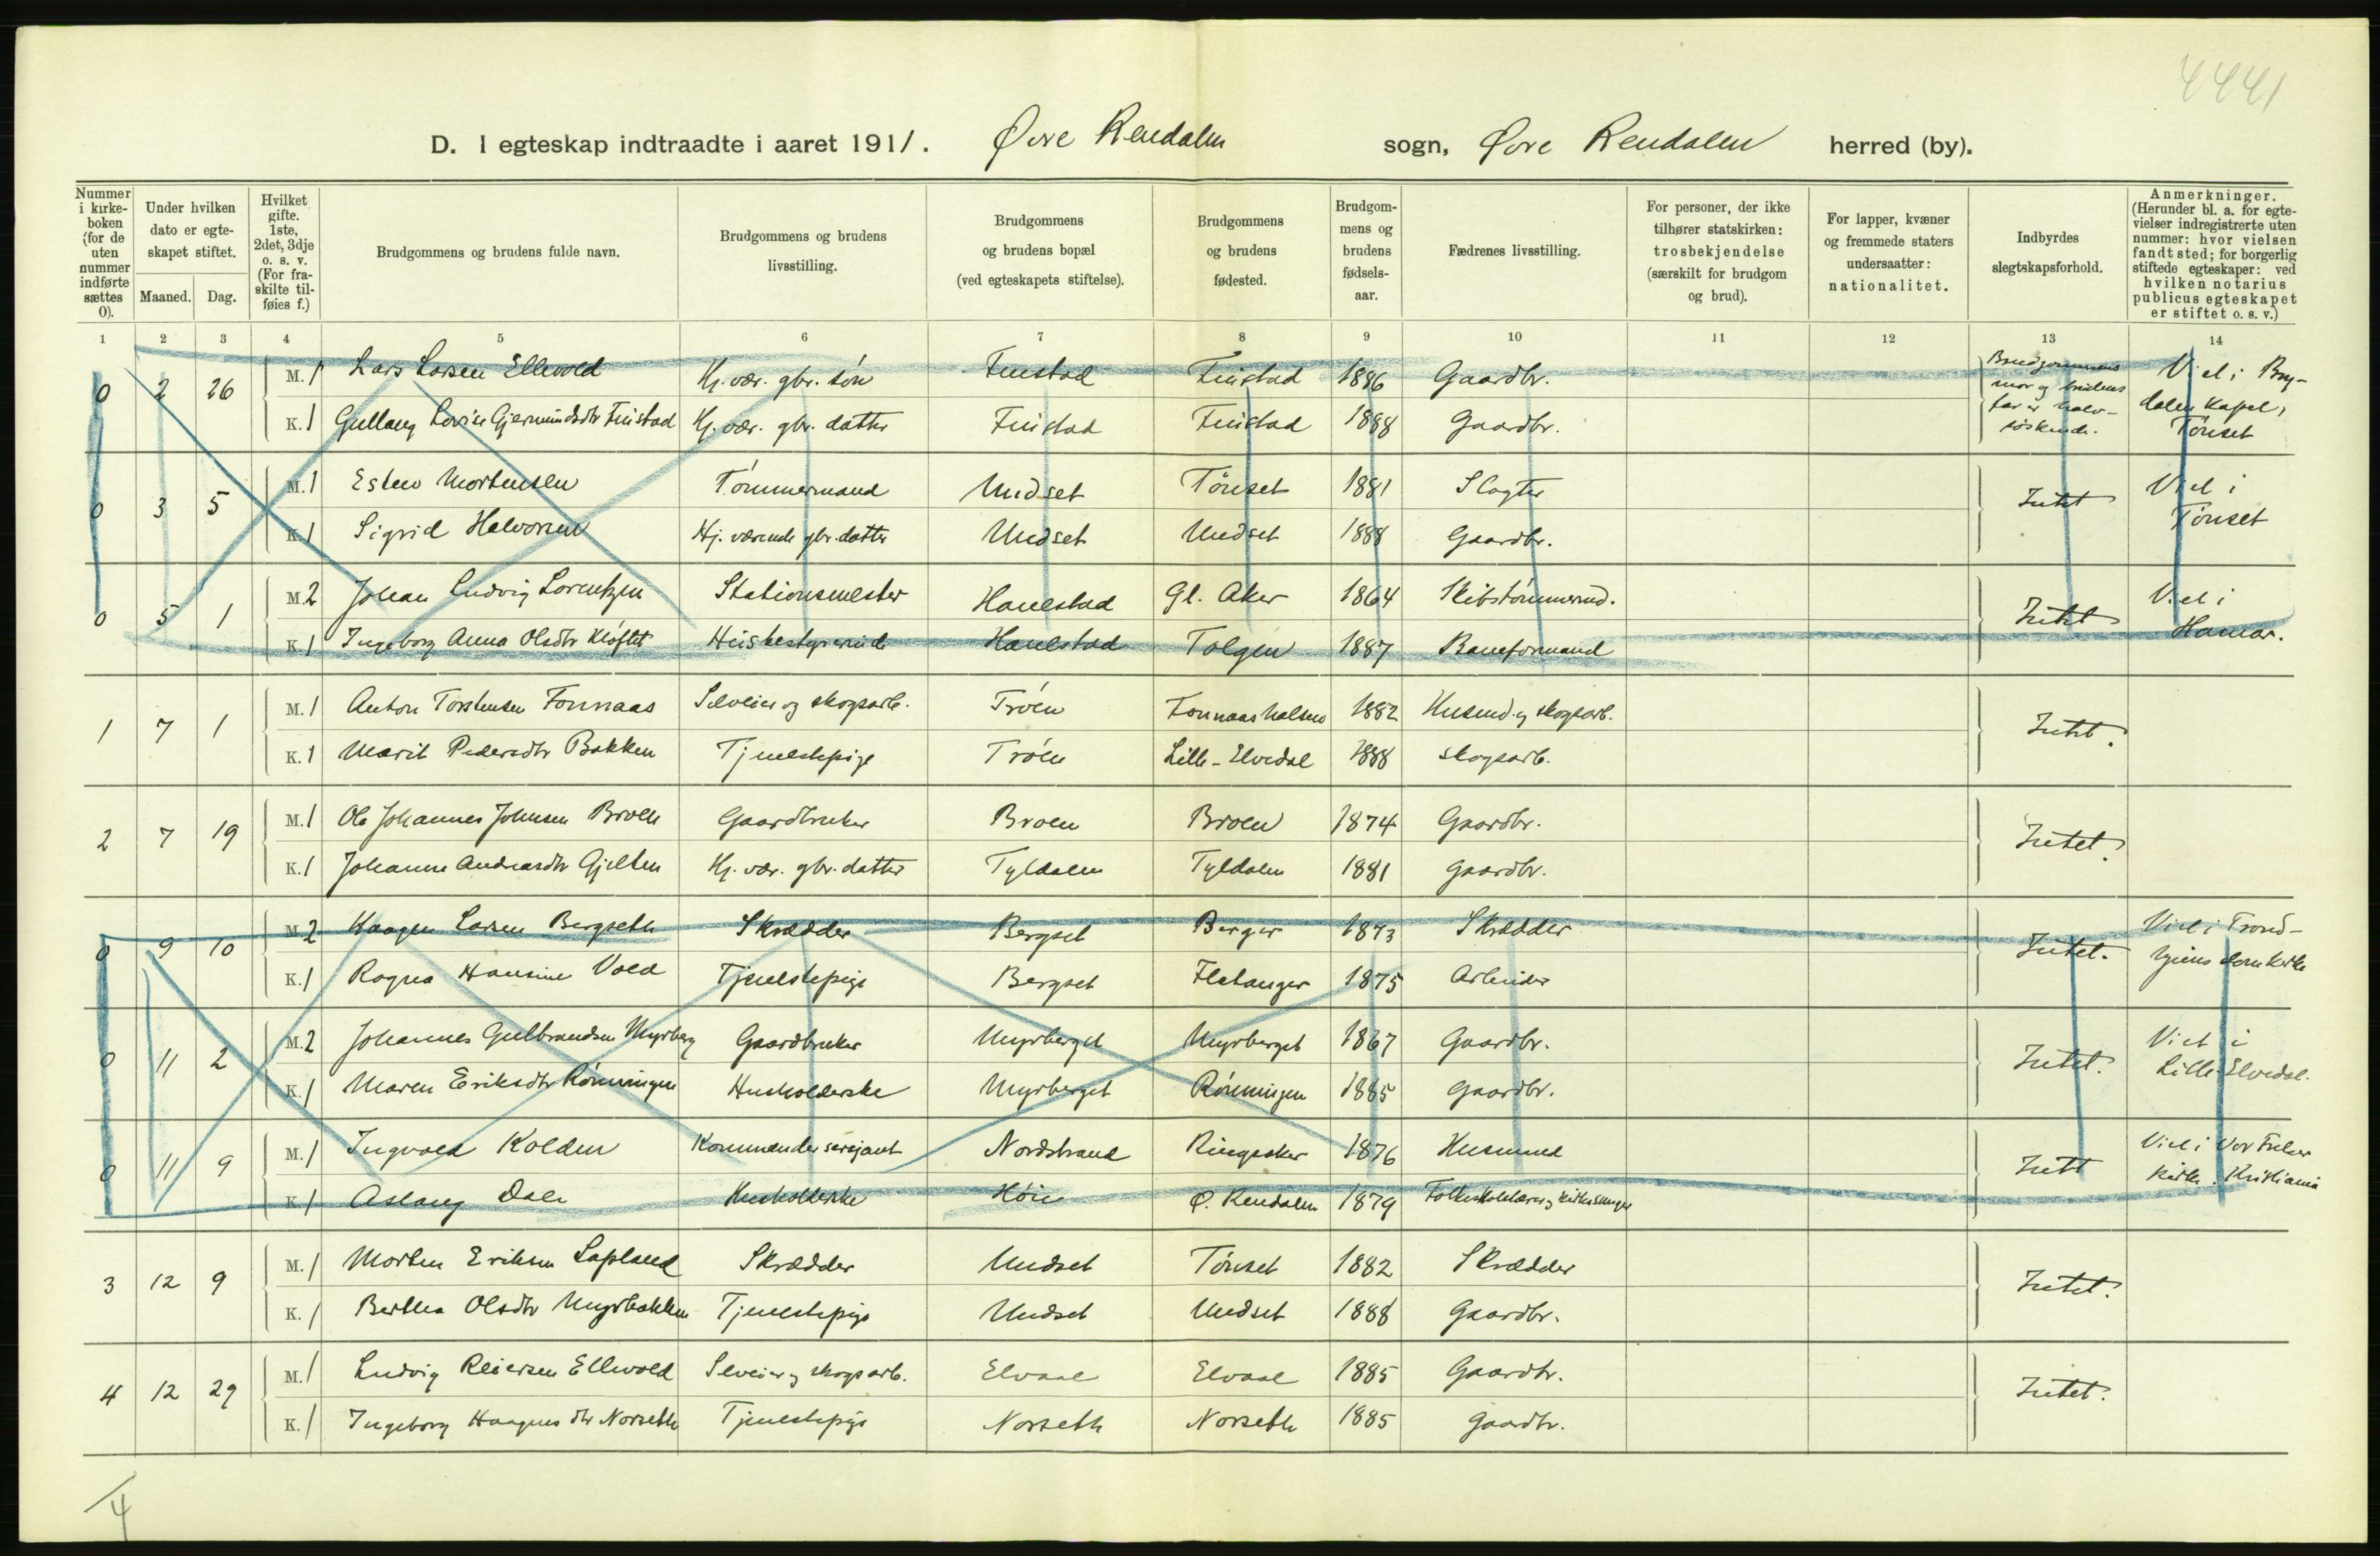 4441
D. I egteskap indtraadte i aaret 1911. Øvre Rendalen sogn, Øvre Rendalen herred (by).
Nummer i kirke-boken (for de uten nummer indførte sættes 0).
Under hvilken dato er egte-skapet stiftet.
Maaned. Dag.
Hvilket gifte. 1ste, 2det, 3dje o. s. v. (For fra-skilte til-føies f.)
Brudgommens og brudens fulde navn.
Brudgommens og brudens livsstilling.
Brudgommens og brudens bopæl (ved egteskapets stiftelse).
Brudgommens og brudens fødested.
Brudgom-mens og brudens fødsels-aar.
Fædrenes livsstilling.
For personer, der ikke tilhører statskirken: trosbekjendelse (særskilt for brudgom og brud).
For lapper, kvæner og fremmede staters undersaatter: nationalitet.
Indbyrdes slegtskapsforhold.
Anmerkninger. (Herunder bl. a. for egte-vielser indregistrerte uten nummer: hvor vielsen fandt sted; for borgerlig stiftede egteskaper: ved hvilken notarius publicus egteskapet er stiftet o. s. v.)
1 2 3 4 5 6 7 8 9 10 11 12 13 14
0 2 26 M. 1 Lars Larsen Ellevold Hj. vær. gbr. søn Finstad Finstad 1886 Gaardbr. Brudgommens mor og brudens far er halv-søskende. Viet i Bry-dalen Kapel, Tönset
K. 1 Gullaug Lovise Gjermundsdtr Finstad Hj. vær. gbr. datter Finstad Finstad 1888 Gaardbr.
0 3 5 M. 1 Esten Mortensen Tömmermand Undset Tönset 1881 Slagter Intet Viet i Tönset
K. 1 Sigrid Halvorsen Hj. værende gbr. datter Undset Undset 1888 Gaardbr.
0 5 1 M. 2 Johan Ludvig Lorentzen Stationsmester Hanestad Gl. Aker 1864 Skibstömmermd. Intet Viet i Hamar.
K. 1 Ingeborg Anna Olsdtr Kløftet Husbestyrerinde Hanestad Tolgen 1887 Baneformand
1 7 1 M. 1 Anton Torstensen Fonnaas Selveier og skogsarb. Tröen Fonnaashalsen 1882 Husmd. og skogsarb. Intet.
K. 1 Marit Pedersdtr Bakken Tjenestepige Tröen Lille-Elvedal 1888 skogsarb.
2 7 19 M. 1 Ole Johannes Johnsen Broen Gaardbruker Broen Broen 1874 Gaardbr. Intet.
K. 1 Johanne Andreasdtr Gjelten Hj. vær. gbr. datter Tyldalen Tyldalen 1881 gaardbr.
0 9 10 M. 2 Haagen Larsen Bergseth Skrædder Bergset Berger 1873 Skrædder Intet. Viet i Trond-hjems domkirke
K. 1 Ragna Hansine Vold Tjenestepige Bergset Flatanger 1875 Arbeider
0 11 2 M. 2 Johannes Gulbrandsen Myrberg Gaardbruker Myrberget Myrberget 1867 Gaardbr. Intet. Viet i Lille Elvedal.
K. 1 Maren Eriksdtr Rönningen Husholderske Myrberget Rönningen 1885 gaardbr.
0 11 9 M. 1 Ingvald Kolden Kommandersersjant Nordstrand Ringsaker 1876 Husmand Intet Viet i Vor Frelser Kirke, Kristiania
K. 1 Aslaug Dale Husholderske Höie Ø. Rendalen 1879 Folkeskolelærer og kirkesanger
3 12 9 M. 1 Morten Eriksen Lapland Skrædder Undset Tönset 1882 Skrædder Intet.
K. 1 Berthea Olsdtr Myrbakken Tjenestepige Undset Undset 1888 Gaardbr.
4 12 29 M. 1 Ludvig Reiersen Ellevold Selveier og skogsarb. Elvaal Elvaal 1885 Gaardbr. Intet.
K. 1 Ingeborg Haagensdtr Norseth Tjenestepige Norseth Norseth 1885 gaardbr.
4